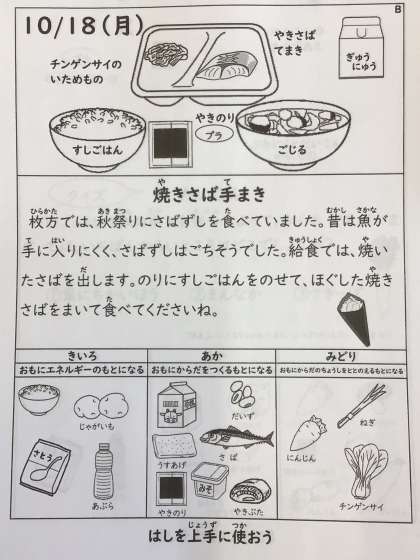 B
10/18(月)
チンゲンサイの
いためもの
やきさば
てまき
ぎゅう
にゅう
やきのり
プラ
すしごはん
ごじる
焼きさば手まき
枚方では、秋祭りにさばずしを食べていました。昔は魚が
手に入りにくく、さばずしはごちそうでした。給食では、焼い
たさばを出します。のりにすしごはんをのせて、ほぐした焼き
さばをまいて食べてくださいね。
きいろ
おもにエネルギーのもとになる
あか
おもにからだをつくるもとになる
みどり
おもにからだのちょうしをととのえるもとになる
じゃがいも
さとう
あぶら
だいず
さば
うすあげ
みそ
やきのり
やきぶた
ねぎ
にんじん
チンゲンサイ
はしを上手に使おう